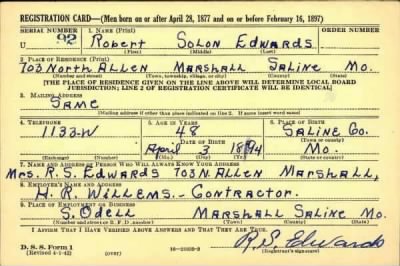 REGISTRATION CARD—(Men born on or after April 28, 1877 and on or before February 16, 1897)
SERIAL NUMBER 1. NAME (Print) ORDER NUMBER
U 92 Robert Solon Edwards
(First) (Middle) (Last)
2. PLACE OF RESIDENCE (Print)
703 North Allen Marshall Saline Mo.
(Number and street) (Town, township, village, or city) (County) (State)
[THE PLACE OF RESIDENCE GIVEN ON THE LINE ABOVE WILL DETERMINE LOCAL BOARD
JURISDICTION; LINE 2 OF REGISTRATION CERTIFICATE WILL BE IDENTICAL]
3. MAILING ADDRESS
Same
[Mailing address if other than place indicated on line 2. If same insert word same]
4. TELEPHONE 5. AGE IN YEARS 6. PLACE OF BIRTH
1133-W 48 Saline Co.
DATE OF BIRTH (Town or county)
April 3 1894 Mo.
(Exchange) (Number) (Mo.) (Day) (Yr.) (State or country)
7. NAME AND ADDRESS OF PERSON WHO WILL ALWAYS KNOW YOUR ADDRESS
Mrs. R. S. Edwards 703 N. Allen Marshall,
8. EMPLOYER'S NAME AND ADDRESS
H. R. Willems - Contractor.
9. PLACE OF EMPLOYMENT OR BUSINESS
S. Odell Marshall Saline Mo.
(Number and street or R. F. D. number) (Town) (County) (State)
I AFFIRM THAT I HAVE VERIFIED ABOVE ANSWERS AND THAT THEY ARE TRUE.
D. S. S. Form 1
(Revised 4-1-42) (over) R. S. Edwards
(Registrant's signature)